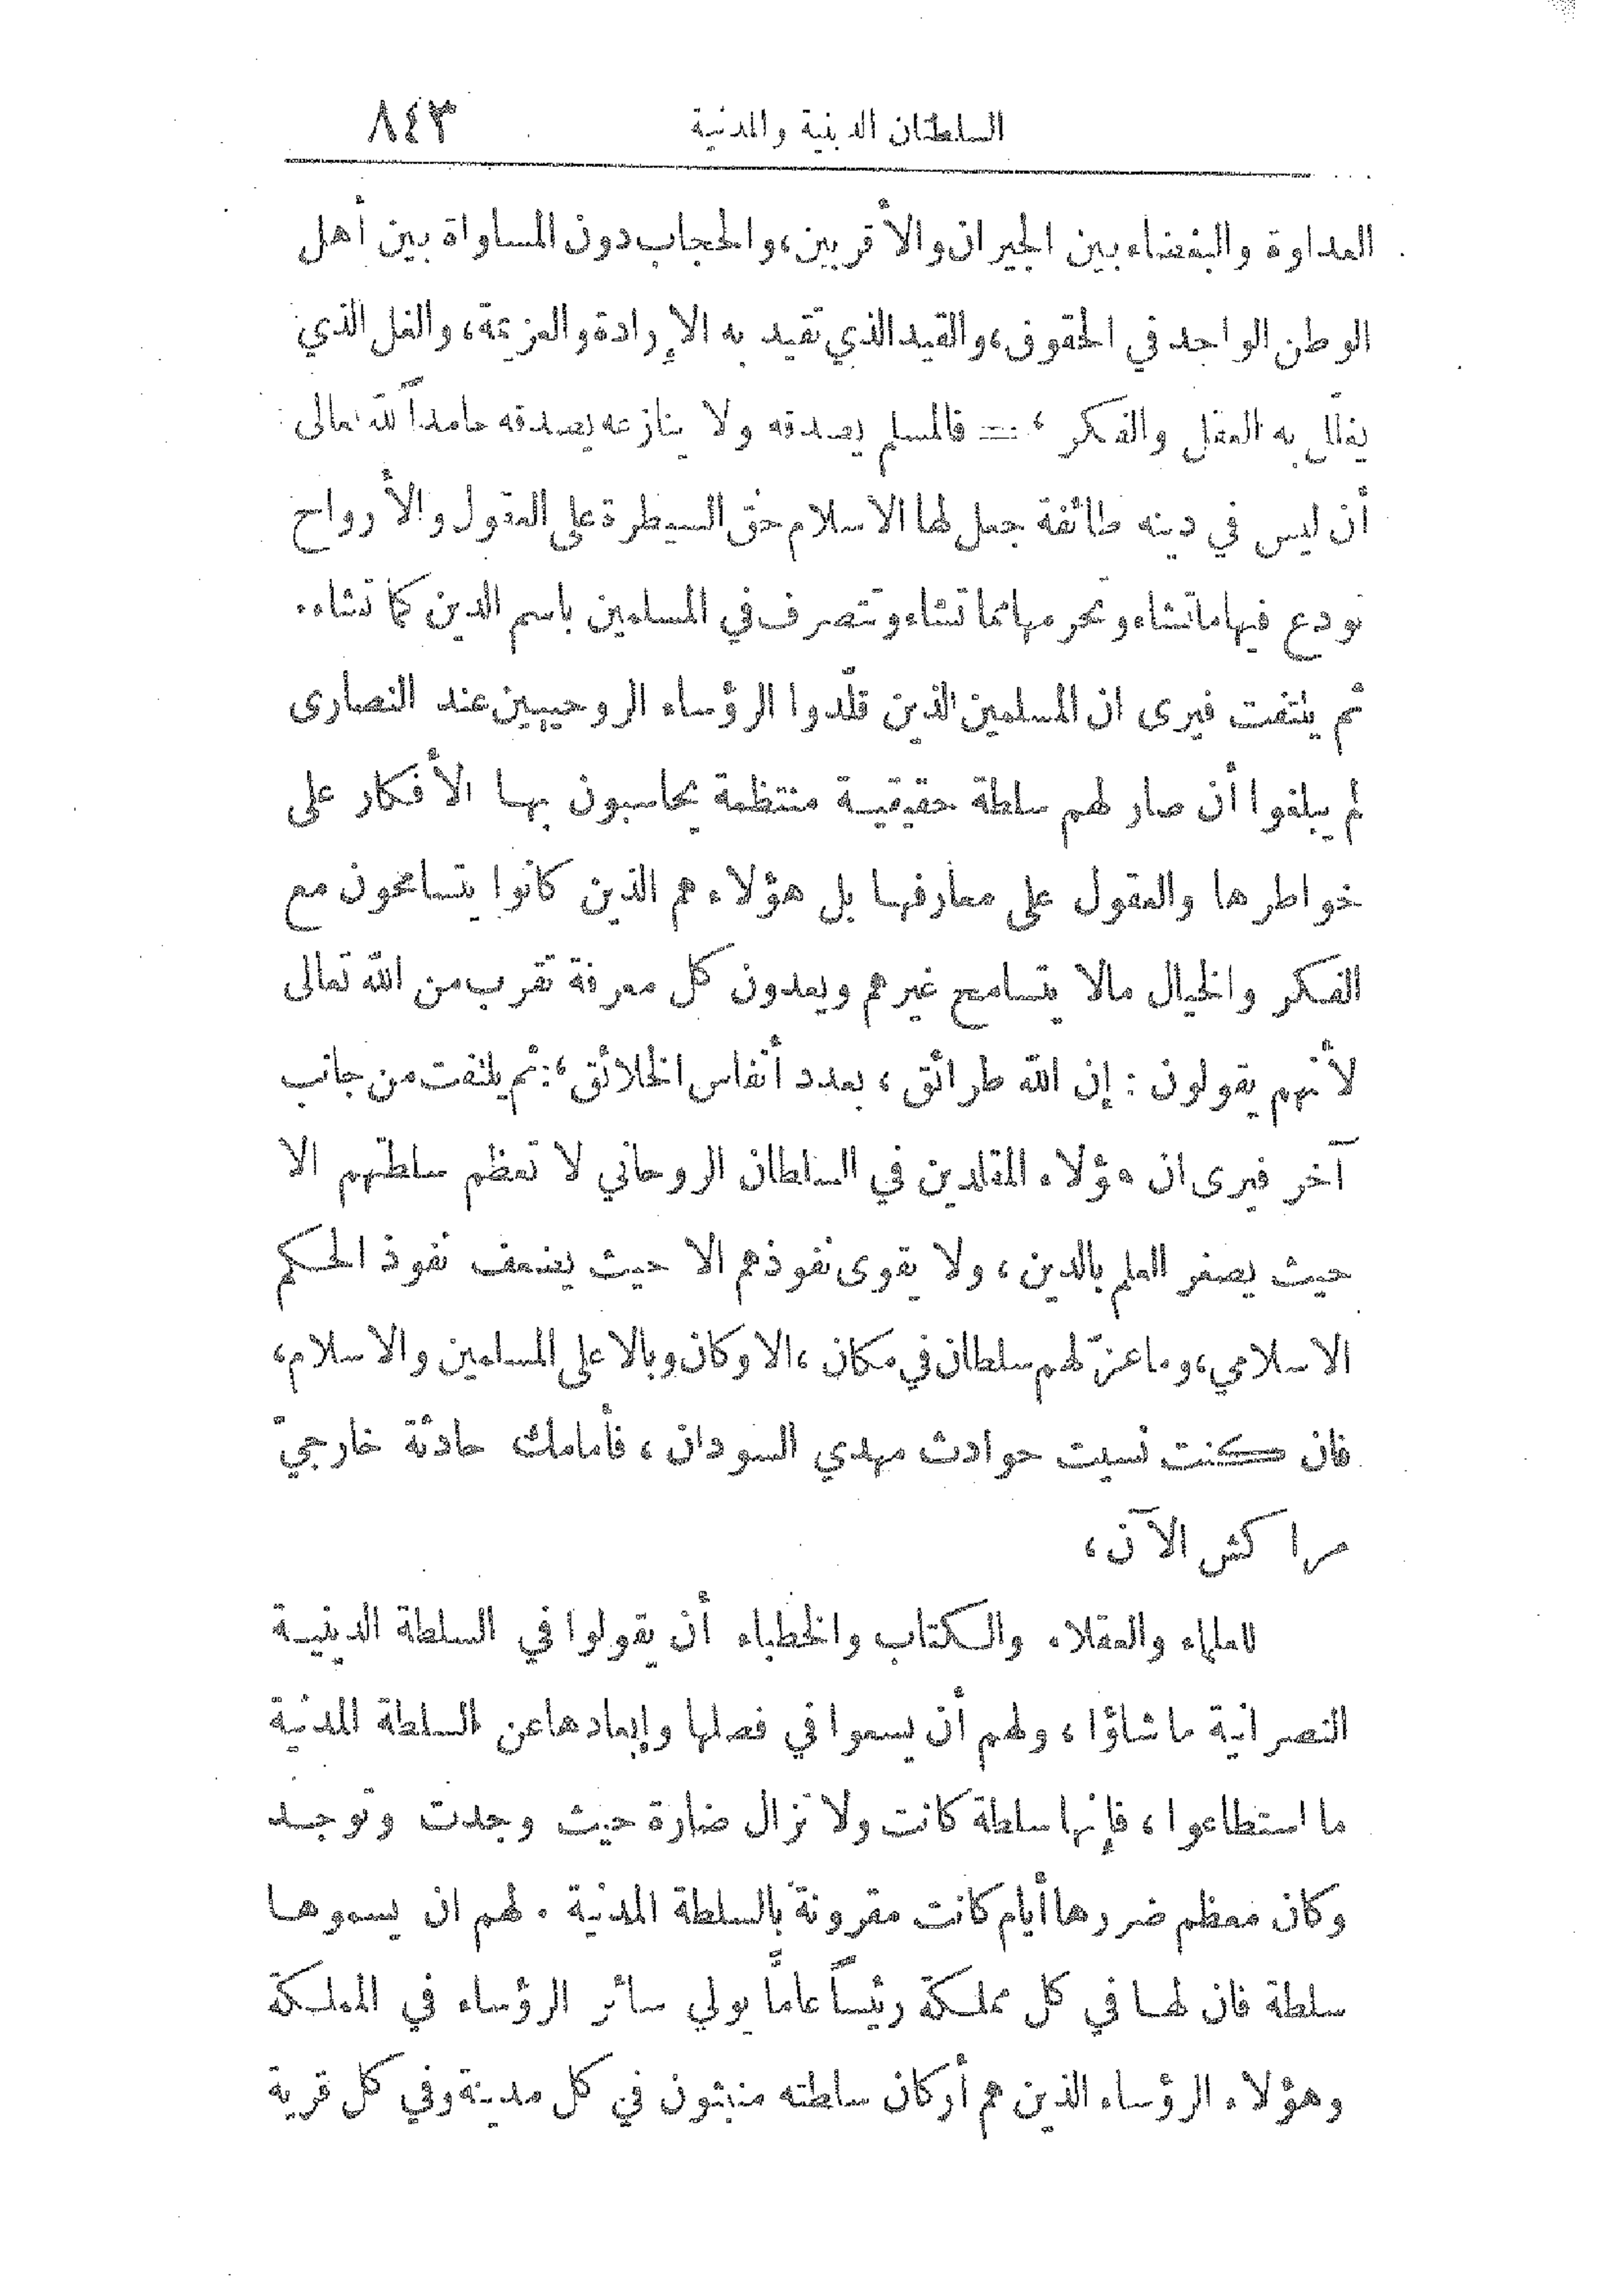 السلطتان الدينية والمدنية ٨٤٣
العداوة والبغضاء بين الجيران والأقربين، والحجاب دون المساواة بين أهل
الوطن الواحد في الحقوق، والقيد الذي تقيد به الإرادة والعزيمة، والغل الذي
يغلّل به العقل والفكر، — فالمسلم يصدقه ولا ينازعه يصدقه حامداً لله تعالى
أن ليس في دينه طائفة جعل لها الاسلام حق السيطرة على العقول والأرواح
تودع فيها ما تشاء وتحرمها مما تشاء وتتصرف في المسلمين باسم الدين كما تشاء.
ثم يلتفت فيرى ان المسلمين الذين قلّدوا الرؤساء الروحيين عند النصارى
لم يبلغوا أن صار لهم سلطة حقيقية منتظمة يحاسبون بها الأفكار على
خواطرها والعقول على معارفها بل هؤلاء هم الذين كانوا يتسامحون مع
الفكر والخيال مالا يتسامح غيرهم ويعدون كل معرفة تقرب من الله تعالى
لأنهم يقولون: إن الله طرائق، بعدد أنفاس الخلائق،: ثم يلتفت من جانب
آخر فيرى ان هؤلاء المقلدين في السلطان الروحاني لا تعظم سلطتهم الا
حيث يصغر العلم بالدين، ولا يقوى نفوذهم الا حيث يضعف نفوذ الحكم
الاسلامي، وما عزّ لهم سلطان في مكان، الا وكان وبالا على المسلمين والاسلام،
فان كنت نسيت حوادث مهدي السودان، فأمامك حادثة خارجيّ
مراكش الآن،
للعلماء والعقلاء والكتاب والخطباء أن يقولوا في السلطة الدينية
النصرانية ما شاؤا، ولهم أن يسعوا في فصلها وإبعادها عن السلطة المدنية
ما استطاعوا، فإنها سلطة كانت ولا تزال ضارة حيث وجدت وتوجد
وكان معظم ضررها أيام كانت مقرونة بالسلطة المدنية. لهم ان يسموها
سلطة فان لها في كل مملكة رئيساً عاماً يولي سائر الرؤساء في المملكة
وهؤلاء الرؤساء الذين هم أركان سلطته منبثون في كل مدينة وفي كل قرية